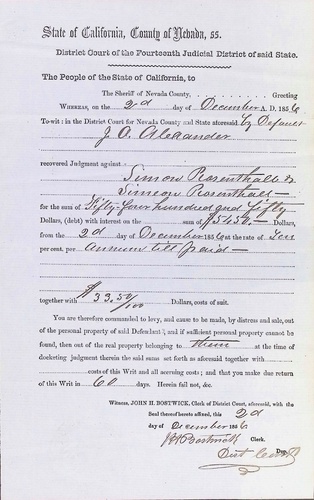 State of California, County of Nevada, ss.
District Court of the Fourteenth Judicial District of said State.
The People of the State of California, to
The Sheriff of Nevada County, Greeting
WHEREAS, on the 2d day of December A. D. 1856
To-wit: in the District Court for Nevada County and State aforesaid by Default
J. O. Alexander
recovered Judgment against
Simon Rosenthall &
Simeon Rosenthall —
for the sum of Fifty-four hundred and fifty
Dollars, (debt) with interest on the sum of $5450.— Dollars,
from the 2d day of December 1856 at the rate of Ten
per cent. per Annum till paid —
together with $33.50/100 Dollars, costs of suit.
You are therefore commanded to levy, and cause to be made, by distress and sale, out
of the personal property of said Defendant, and if sufficient personal property cannot be
found, then out of the real property belonging to them at the time of
docketing judgment therein the said sums set forth as aforesaid together with
costs of this Writ and all accruing costs; and that you make due return
of this Writ in 60 days. Herein fail not, &c.
Witness, JOHN H. BOSTWICK, Clerk of District Court, aforesaid, with the
Seal thereof hereto affixed, this 2d
day of December 1856
J H Bostwick Clerk.
Dep